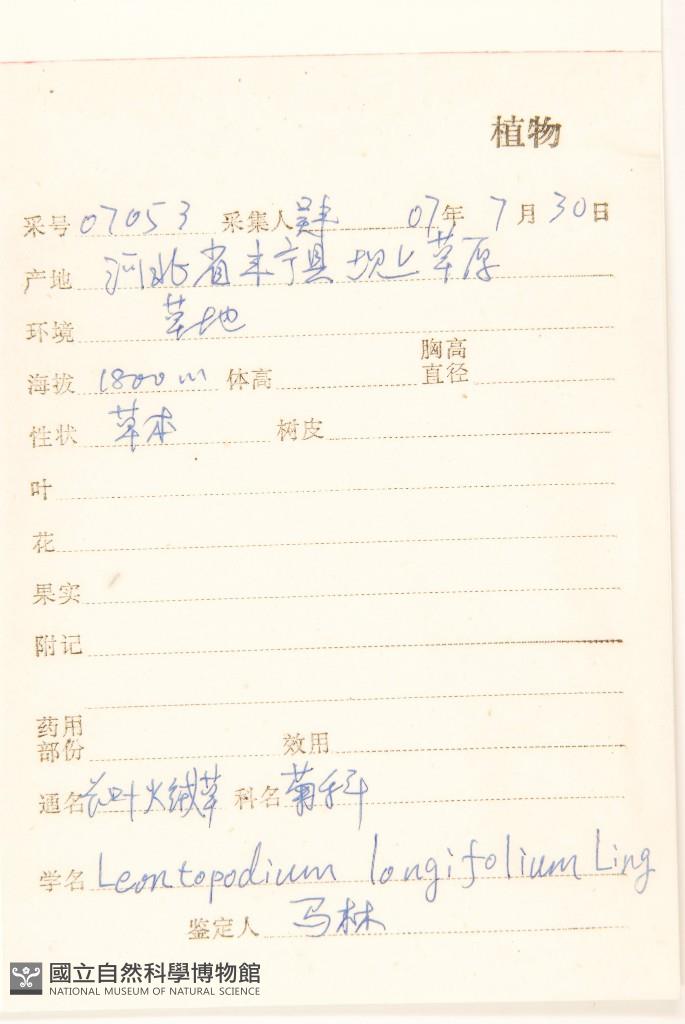 植物
采号 07053 采集人 07年 7月 30日
产地 河北省丰宁县坝上草原
环境 草地
胸高
海拔 1800m 体高 直径
性状 草本 树皮
叶
花
果实
附记
药用
部份 效用
通名 长叶火绒草 科名 菊科
学名 Leontopodium longifolium Ling
鉴定人 马林
國立自然科學博物館
NATIONAL MUSEUM OF NATURAL SCIENCE